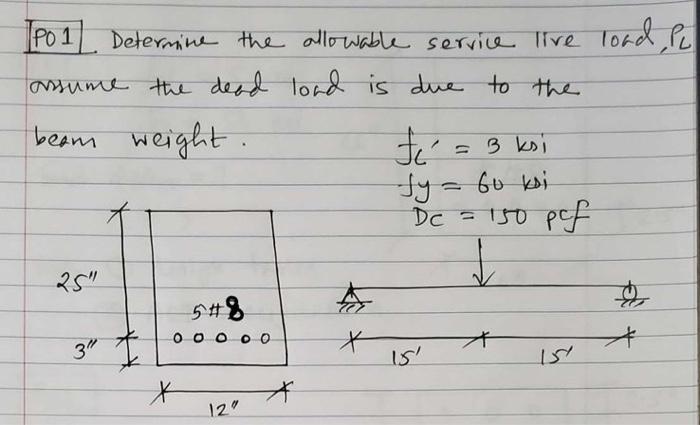 PO 1. Determine the allowable service live load, PL
assume the dead load is due to the
beam weight.
fc' = 3 ksi
fy = 60 ksi
Dc = 150 pcf
25"
5#8
3"
12"
15' 15'